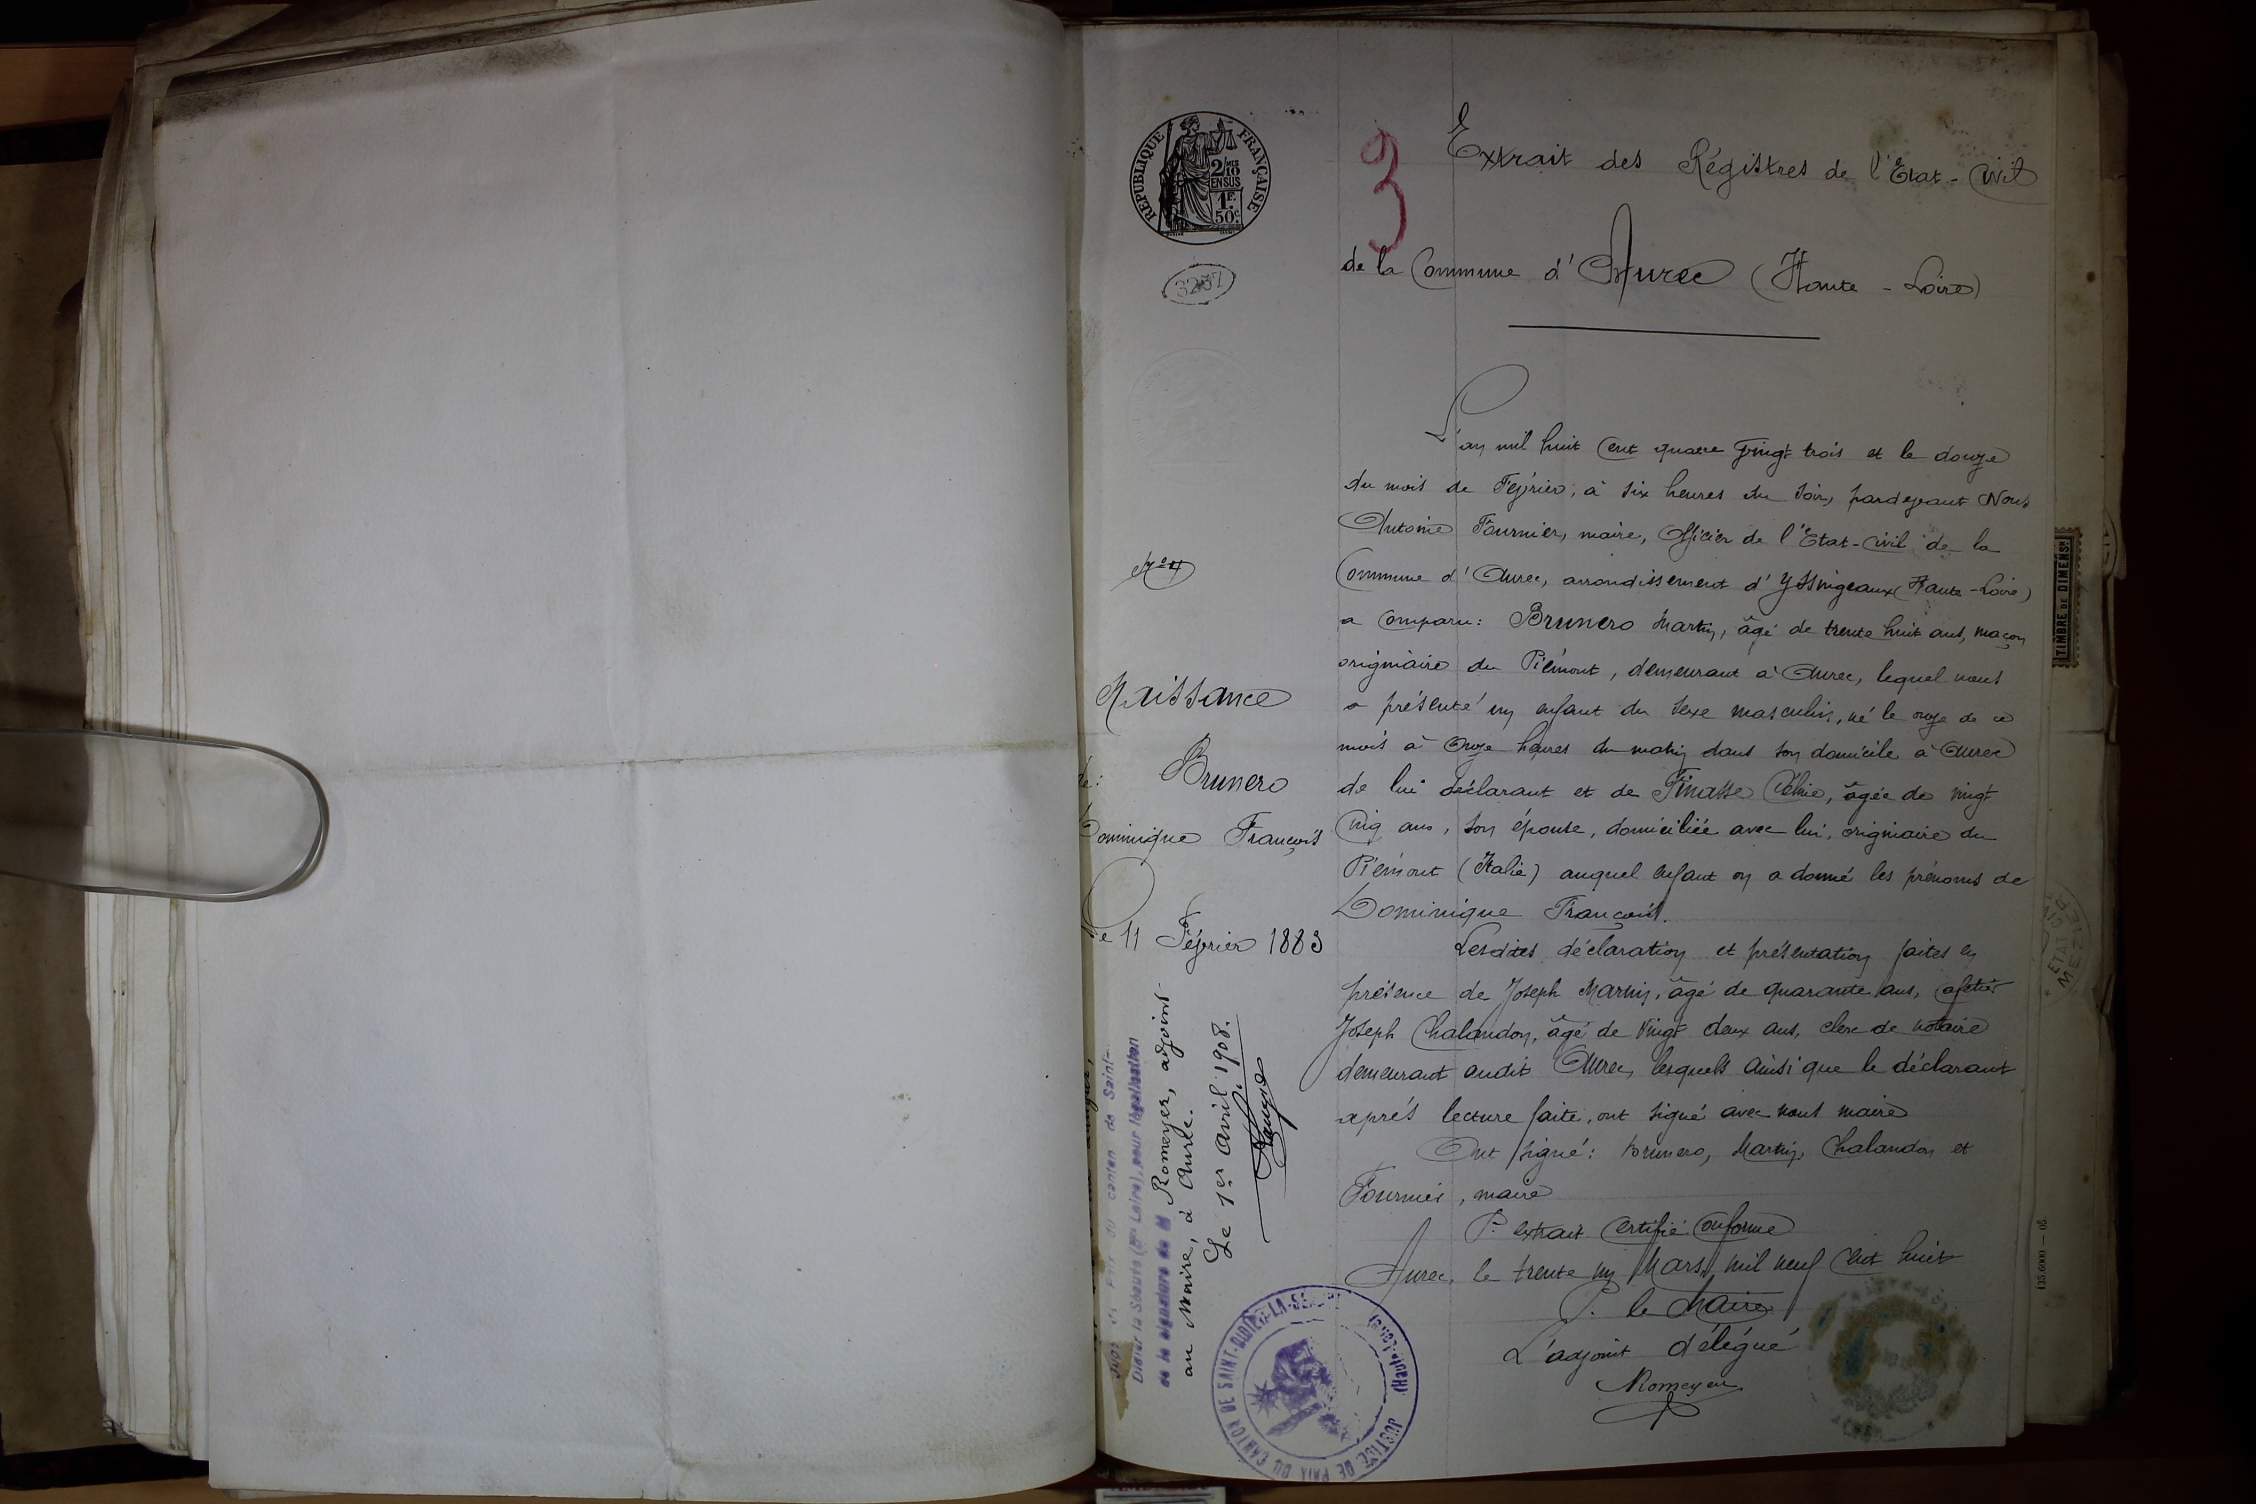 RÉPUBLIQUE FRANÇAISE
2/10 MES
EN SUS
1F.
50c.
3237
3
Extrait des Régistres de l'Etat-Civil
de la Commune d'Aurec (Haute-Loire)
L'an mil huit cent quatre vingt trois et le douze
du mois de Février, à six heures du soir, pardevant Nous
Antoine Fournier, maire, Officier de l'Etat-civil de la
Commune d'Aurec, arrondissement d'Yssingeaux (Haute-Loire)
a comparu: Brunero Martin, âgé de trente huit ans, maçon
originaire du Piémont, demeurant à Aurec, lequel nous
a présenté un enfant du sexe masculin, né le onze de ce
mois à onze heures du matin dans son domicile à Aurec
de lui déclarant et de Finasse, âgée de vingt
cinq ans, son épouse, domiciliée avec lui, originaire du
Piémont (Italie) auquel enfant on a donné les prénoms de
Dominique François.
Lesdites déclaration et présentation faites en
présence de Joseph Martin, âgé de quarante ans, cafetier
Joseph Chalandon, âgé de vingt deux ans, clerc de notaire
demeurant audit Aurec, lesquels ainsi que le déclarant
après lecture faite, ont signé avec nous maire
Ont signé: Brunero, Martin, Chalandon et
Fournier, maire
P. extrait certifié conforme
Aurec, le trente un Mars mil neuf cent huit
P. le Maire
L'adjoint délégué
Romeyer
N°4
Naissance
de:
Brunero
Dominique François
Le 11 Février 1883
Juge de Paix du canton de Saint-
Didier la Séauve (Hte Loire), pour légalisation
de la signature de M Romeyer, adjoint
au Maire, à Aurec.
Le 1er avril 1908.
JUSTICE DE PAIX DU CANTON DE SAINT-DIDIER-LA-SÉAUVE (Haute-Loire)
TIMBRE DE DIMENSN